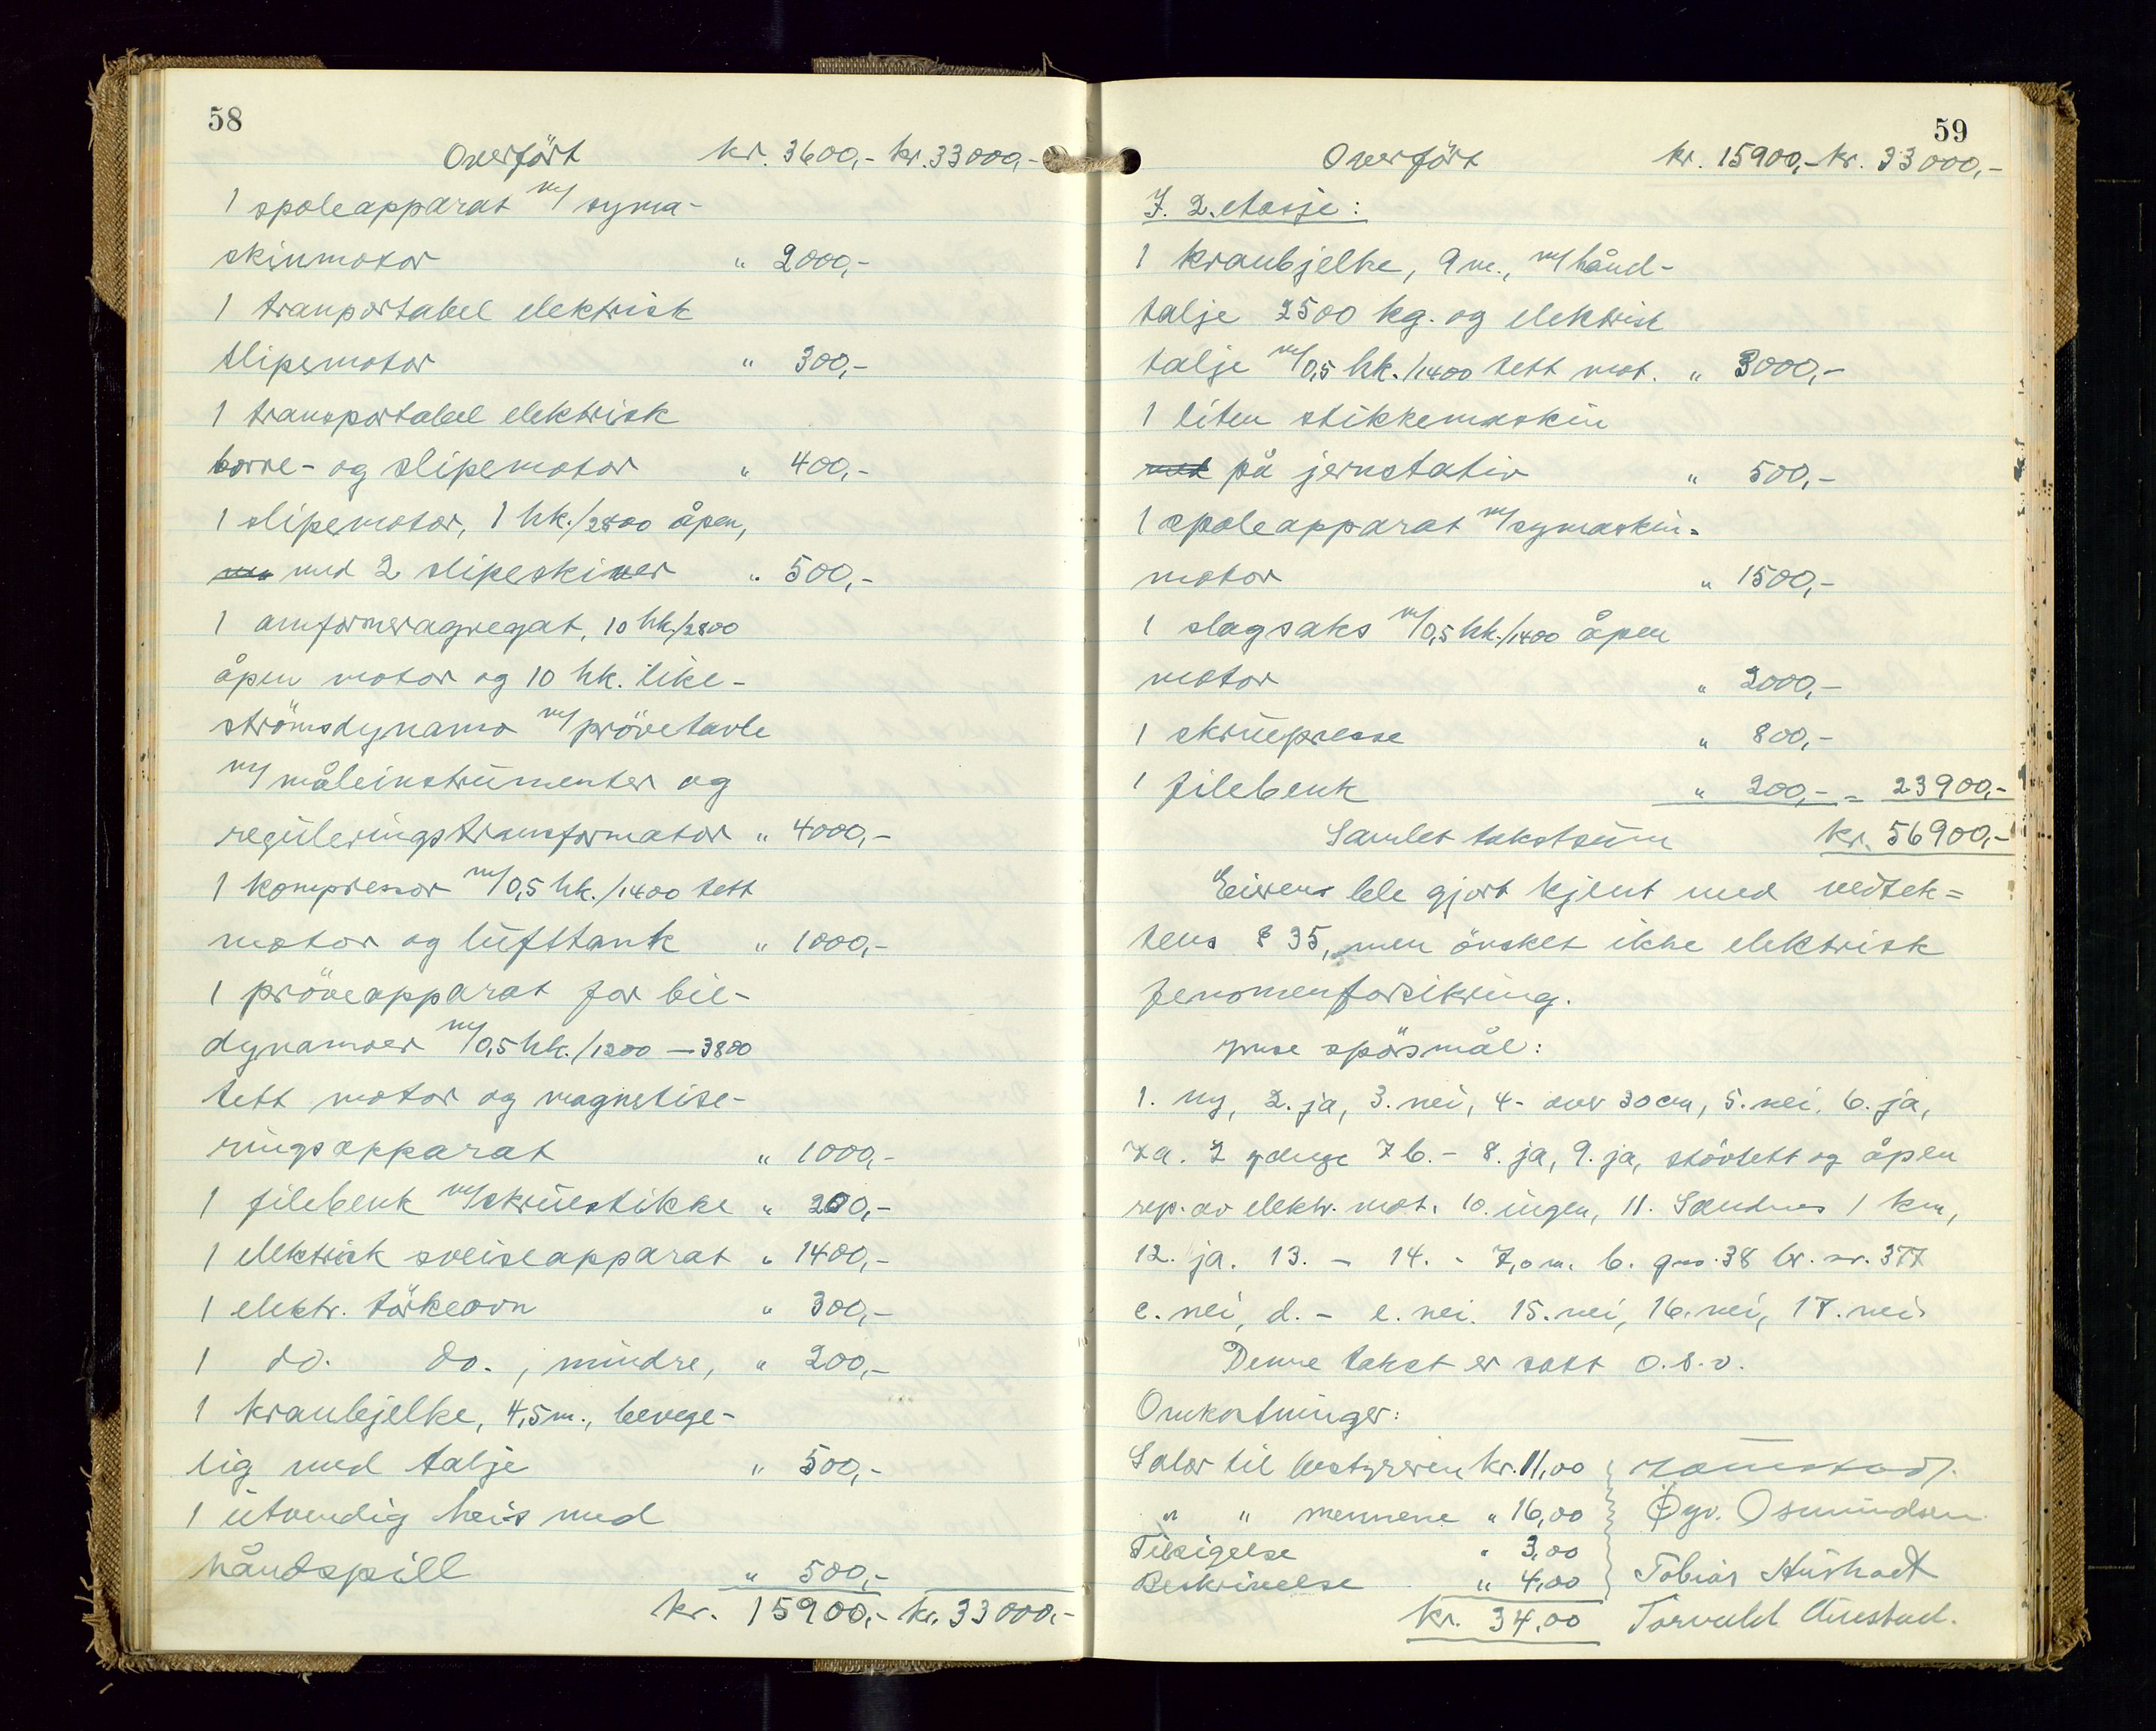 58
Overført kr. 3600,- kr. 33000,-
1 spoleapparat m/ syma-
skinmotor " 2000,-
1 tranportabel elektrisk
slipemotor " 300,-
1 transportabel elektrisk
borre- og slipemotor " 400,-
1 slipemotor, 1 hk./2800 åpen,
med 2 slipeskiver " 500,-
1 omformeragregat, 10 hk/2800
åpen motor og 10 hk. like-
strömsdynamo m/ prövetavle
m/ måleinstrumenter og
reguleringstransformator " 4000,-
1 kompressor m/ 0,5 hk./1400 tett
motor og lufttank " 1000,-
1 pröveapparat for bil-
dynamoer m/ 0,5 hk./1200 – 3800
tett motor og magnetise-
ringsapparat " 1000,-
1 filebenk m/ skruestikke " 200,-
1 elektrisk sveiseapparat " 1400,-
1 elektr. törkeovn " 300,-
1 do. do., mindre, " 200,-
1 kranbjelke, 4,5 m., bevege-
lig med talje " 500,-
1 utvendig heis med
håndspill " 500,-
kr. 15900,- kr. 33000,-
59
Overført kr. 15900,- kr. 33000,-
I. 2. etasje:
1 kranbjelke, 9 m., m/ hånd-
talje 2500 kg. og elektrisk
talje m/ 0,5 hk./1400 tett mot. " 3000,-
1 liten stikkemaskin
på jernstativ " 500,-
1 spoleapparat m/ symaskin=
motor " 1500,-
1 slagsaks m/ 0,5 hk./1400 åpen
motor " 2000,-
1 skruepresse " 800,-
1 filebenk " 200,- = 23900,-
Samlet takstsum kr. 56900,-
Eieren ble gjort kjent med vedtek=
tens § 35, men önsket ikke elektrisk
fenomenforsikring.
spörsmål:
1. ny, 2. ja, 3. nei, 4- over 30 cm, 5. nei, 6. ja,
7 a. 7 b. - 8. ja, 9. ja, stövtett og åpen
rep. av elektr. mot. 10. ingen, 11. Sandnes 1 km,
12. ja. 13. - 14. - 7,0 m. b. gnr. 38 br. nr. 377
c. nei, d. - e. nei. 15. nei, 16. nei, 17. nei.
Denne takst er satt o.s.v.
Omkostninger:
Salær til bestyreren kr. 11,00
" " mennene " 16,00 Øyv. Osmundsen
Tilsigelse " 3,00
Beskrivelse " 4,00 Tobias
kr. 34,00 Torvald Austad.